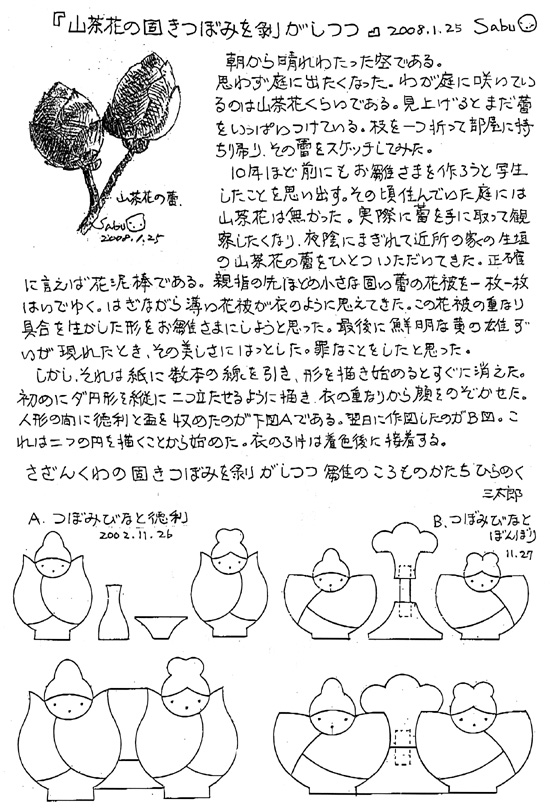 『山茶花の固きつぼみを剥がしつつ』 2008.1.25 Sabu
朝から晴れわたった空である。
思わず庭に出たくなった。わが庭に咲いてい
るのは山茶花くらいである。見上げるとまだ蕾
をいっぱいつけている。枝を一つ折って部屋に持
ち帰り、その蕾をスケッチしてみた。
10年ほど前にもお雛さまを作ろうと写生
したことを思い出す。その頃住んでいた庭には
山茶花は無かった。実際に蕾を手に取って観
察したくなり、夜陰にまぎれて近所の家の生垣
の山茶花の蕾をひとついただいてきた。正確
に言えば花泥棒である。親指の先ほどの小さな固い蕾の花被を一枚一枚
はいでゆく。はぎながら薄い花被が衣のように思えてきた。この花被の重なり
具合を生かした形をお雛さまにしようと思った。最後に鮮明な黄の雄ず
いが現れたとき、その美しさにはっとした。罪なことをしたと思った。
しかし、それは紙に数本の線を引き、形を描き始めるとすぐに消えた。
初めにダ円形を縦に二つ立たせるように描き、衣の重なりから顔をのぞかせた。
人形の間に徳利と盃を収めたのが下図Aである。翌日に作図したのがB図。こ
れは二つの円を描くことから始めた。衣の3片は着色後に接着する。
さざんくわの固きつぼみを剥がしつつ 雛のころものかたちひらめく
三太郎
山茶花の蕾.
Sabu
2008.1.25
A. つぼみびなと徳利
2002.11.26
B. つぼみびなと
ぼんぼり
11.27